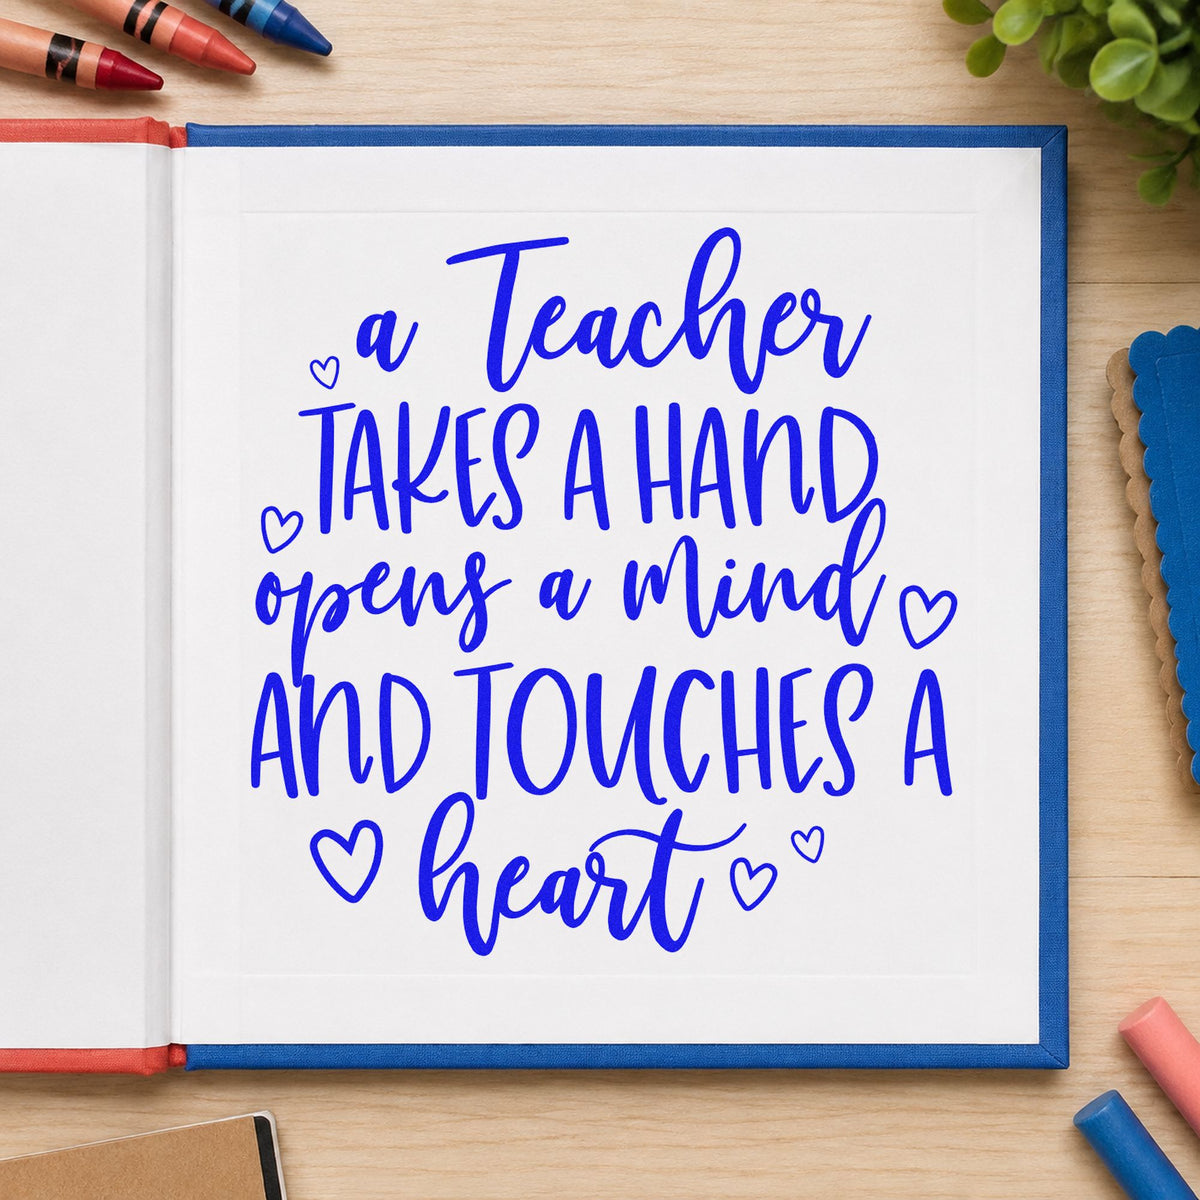 a Teacher
TAKES A HAND
opens a mind
AND TOUCHES A
heart